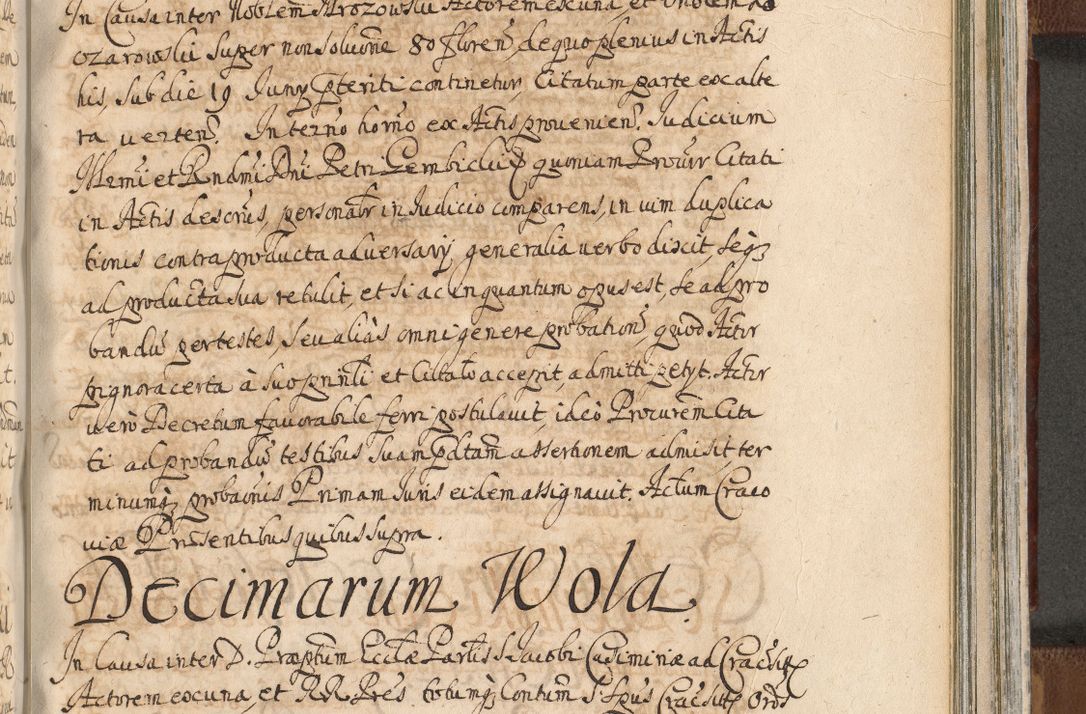 In Causa inter Nobilem Mrozowski Actorem ex una, et Nobilem
ozarowski super non soluoe 80 floren, de quo plenius in Actis
his, sub die 19 Juny pteriti continetur, Citatum parte ex alte
ra uerten. In terno horno ex Actis prouenien. Judicium
Illrmi et Rndmi Dni Petri Gembicki quoniam Procurr Citati
in Actis descrus, personalr in Judicio comparens, in uim duplica
tionis contra producta aduersary generalia uerbo dixit, seqz
ad producta sua retulit, et si ac in quantum opus est, se ad pro
bandu per testes, seu alias omni genere probation, quod Actor
pignora certa à suo prinli et Citato accepit, admitti petyt. Actor
uerò Decretum fauorabile ferri postulauit, ideò Procurem Cita
ti ad probandu testibus suam pdtam assertionem admisit ter
minumqz probaonis Primam Juris eidem assignauit. Actum Craco
uiæ Præsentibus quibus supra.
Decimarum Wola.
In Causa inter D. Præptum Ecclæ Parlis S Jacobi Casimiriæ ad Crac
Actorem ex una, et RR Pres totumqz Contum S. Spus Crac Ord